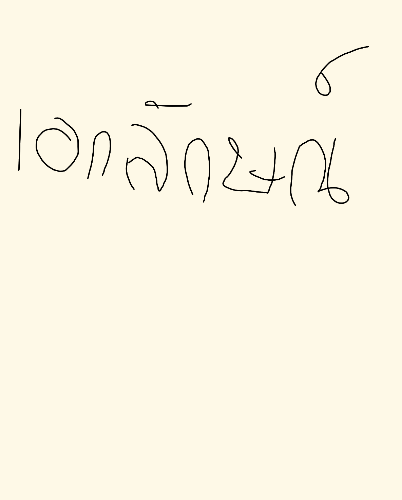 เอกลักษณ์